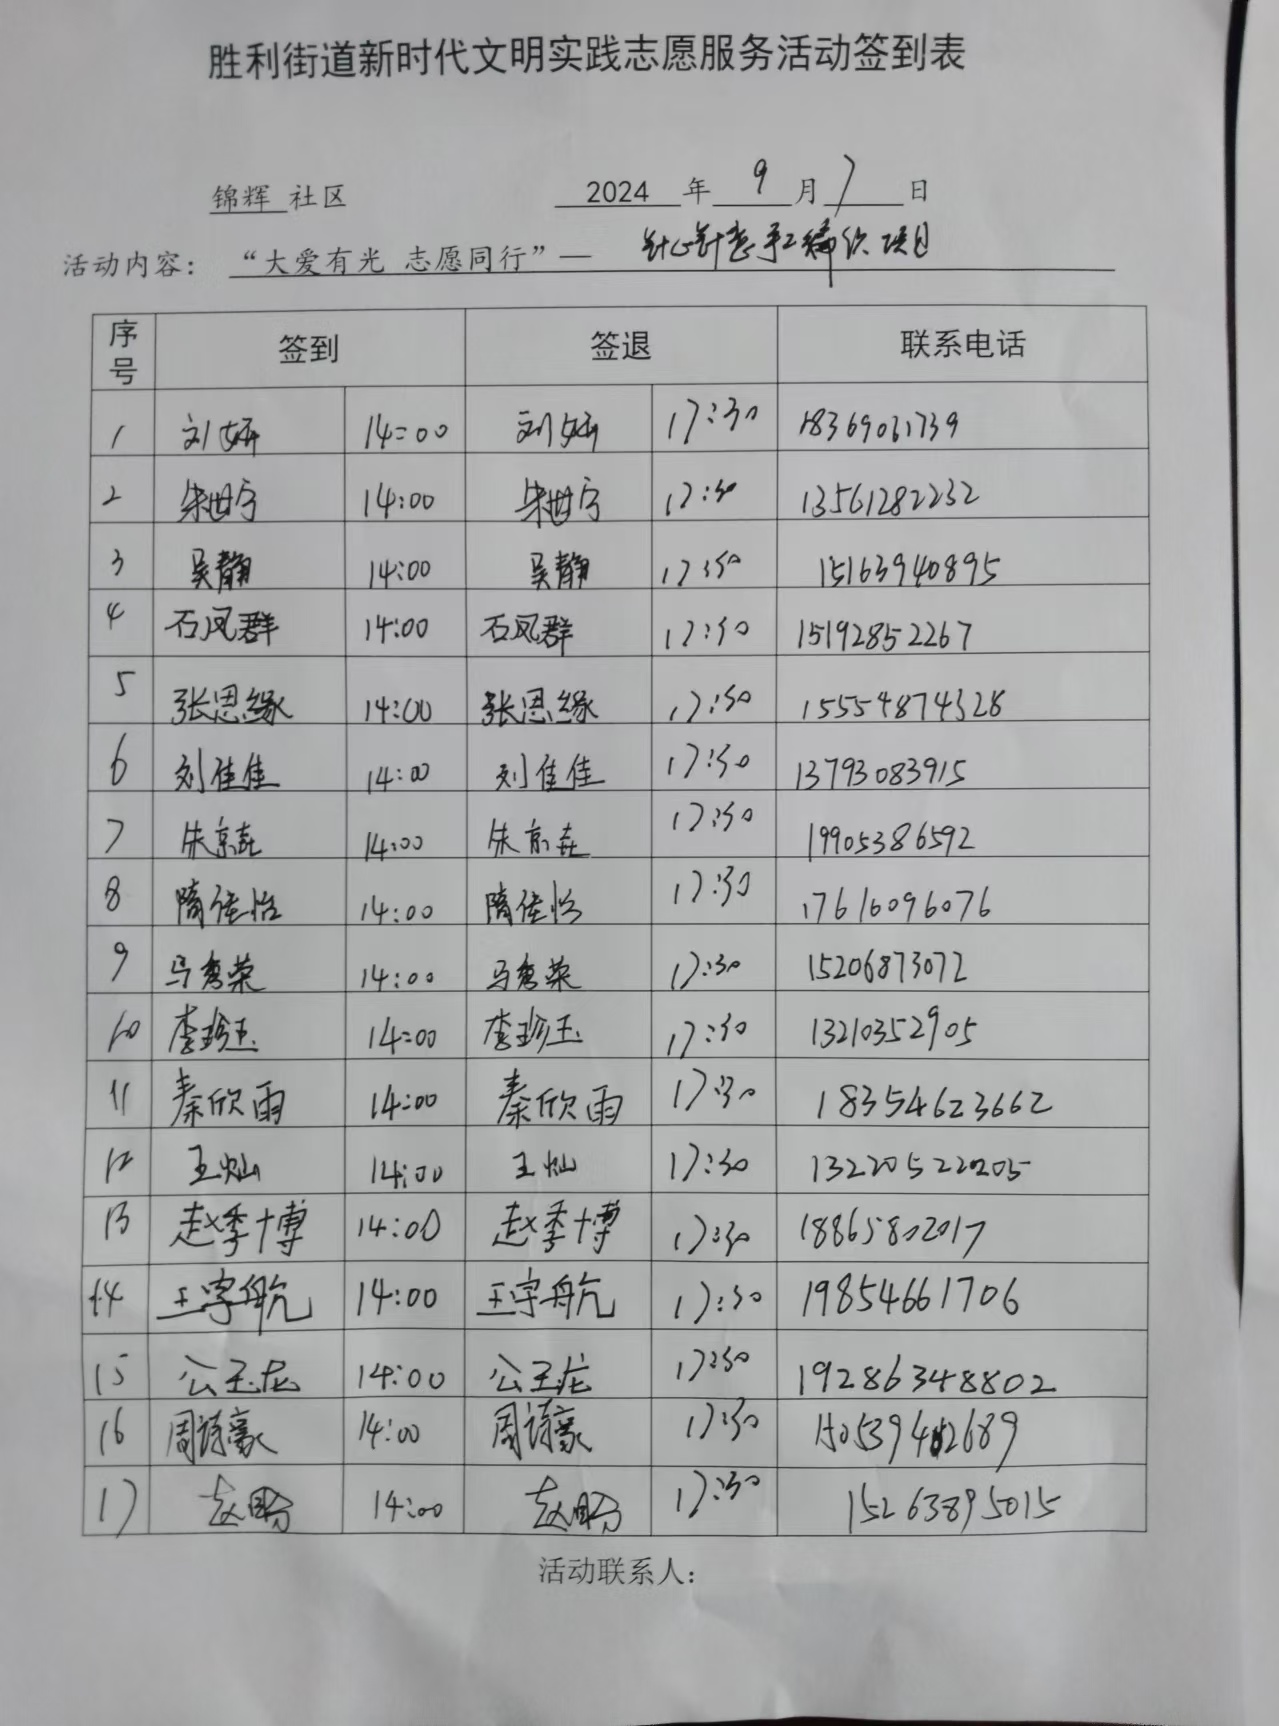 胜利街道新时代文明实践志愿服务活动签到表
锦辉 社区 2024 年 9 月 7 日
活动内容: “大爱有光 志愿同行”— 针心针意手工编织项目
序号 签到 签退 联系电话
1 刘妍 14:00 刘妍 17:30 18369061739
2 朱世宁 14:00 朱世宁 17:30 13561282232
3 吴静 14:00 吴静 17:30 15163940895
4 石凤群 14:00 石凤群 17:30 15192852267
5 张恩缘 14:00 张恩缘 17:30 15554874328
6 刘佳佳 14:00 刘佳佳 17:30 13793083915
7 朱京垚 14:00 朱京垚 17:30 19905386592
8 隋佳怡 14:00 隋佳怡 17:30 17616096076
9 马秀荣 14:00 马秀荣 17:30 15206873072
10 李珍玉 14:00 李珍玉 17:30 13210352905
11 秦欣雨 14:00 秦欣雨 17:30 18354623662
12 王灿 14:00 王灿 17:30 13220522205
13 赵季博 14:00 赵季博 17:30 18865802017
14 王宇航 14:00 王宇航 17:30 19854661706
15 公玉龙 14:00 公玉龙 17:30 19286348802
16 周诗豪 14:00 周诗豪 17:30
17 赵 14:00 赵 17:30 15263895015
活动联系人: